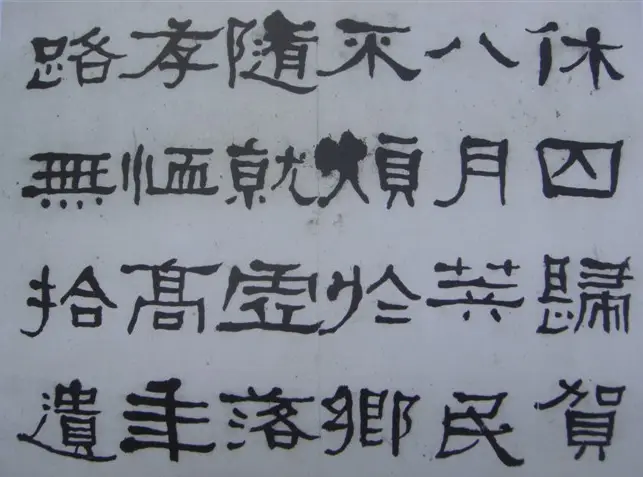 休囚歸賀
八月筭民
不煩於鄉
隨就虛落
存恤高年
路無拾遺